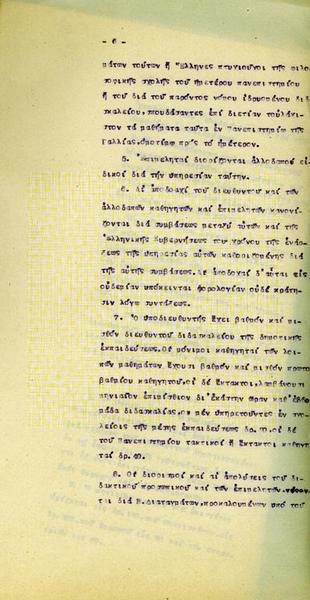 - 6 -
μάτων τούτων ἤ Ἕλληνες πτυχιοῦχοι τῆς φιλο-
σοφικῆς σχολῆς τοῦ ἡμετέρου πανεπιστημίου
ἤ τοῦ διά τοῦ παρόντος νόμου ἱδρυομένου διδα-
σκαλείου, σπουδάσαντες ἐπί διετίαν τοὐλάχι-
στον τά μαθήματα ταῦτα ἐν Πανεπιστημίῳ τῆς
Γαλλίας, ὁμοτίμῳ πρός τό ἡμέτερον.
5. Ἐπιμεληταί διορίζονται ἀλλοδαποί εἰ-
δικοί διά τήν ὑπηρεσίαν ταύτην.
6. Αἱ ἀποδοχαί τοῦ διευθυντοῦ καί τῶν
ἀλλοδαπῶν καθηγητῶν καί ἐπιμελητῶν κανονί-
ζονται διά συμβάσεως μεταξύ αὐτῶν καί τῆς
Ἑλληνικῆς Κυβερνήσεως τοῦ χρόνου τῆς ἐνάρ-
ξεως τῆς ὑπηρεσίας αὐτῶν καθοριζομένης διά
τῆς αὐτῆς συμβάσεως. Αἱ ἀποδοχαί δ'αὗται εἰς
οὐδεμίαν ὑπόκεινται φορολογίαν οὐδέ κράτη-
σιν λόγῳ συντάξεως.
7. Ὁ ὑποδιευθυντής ἔχει βαθμόν καί μι-
σθόν διευθυντοῦ διδασκαλείου τῆς δημοτικῆς
ἐκπαιδεύσεως. Οἱ μόνιμοι καθηγηταί τῶν λοι-
πῶν μαθημάτων ἔχουσι βαθμόν καί μισθόν πρωτο-
βαθμίου καθηγητοῦ, οἱ δέ ἔκτακτοι, λαμβάνουσι
μηνιαῖον ἐπιμίσθιον δι'ἑκάστην ὥραν καθ'ἑβδο-
μάδα διδασκαλίας, οἱ μέν ὑπηρετοῦντες ἐν σχο-
λείοις τῆς μέσης ἐκπαιδεύσεως δρ. οἱ δέ
τοῦ Πανεπιστημίου τακτικοί ἤ ἔκτακτοι καθηγη-
ταί δρ. 40.
8. Οἱ διορισμοί καί αἱ ἀπολύσεις τοῦ δι-
δακτικοῦ προσωπικοῦ καί τῶν ἐπιμελητῶν,
ται διά Β. Διαταγμάτων, προκαλουμένων ὑπό τοῦ